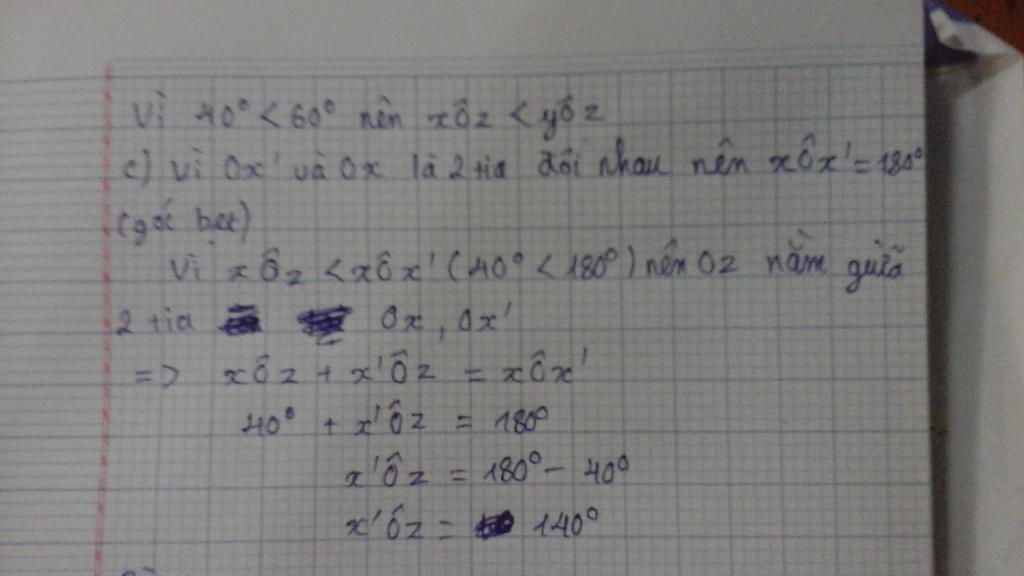 Vì 40° < 60° nên xÔz < yÔz
c) Vì Ox' và Ox là 2 tia đối nhau nên xÔx' = 180°
(góc bẹt)
Vì xÔz < xÔx' (40° < 180°) nên Oz nằm giữa
2 tia Ox, Ox'
=> xÔz + x'Ôz = xÔx'
40° + x'Ôz = 180°
x'Ôz = 180° - 40°
x'Ôz = 140°